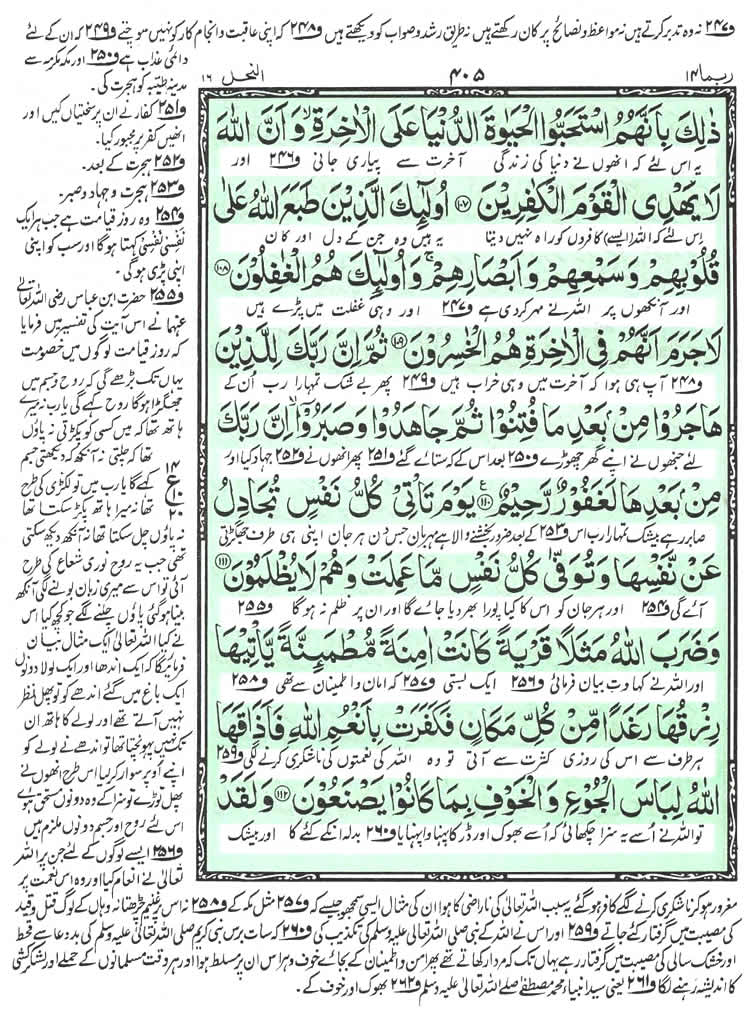 و۲۴۷ نہ وہ تدبر کرتے ہیں نہ مواعظ و نصائح پر کان رکھتے ہیں نہ طریق رشد و صواب کو دیکھتے ہیں و۲۴۸ کہ اپنی عاقبت و انجام کار کو نہیں سوچتے و۲۴۹ کہ ان کے لئے
دائمی عذاب ہے و۲۵۰ اور مکہ مکرمہ سے
مدینہ طیبہ کو ہجرت کی ۔
و۲۵۱ کفار نے ان پر سختیاں کیں اور
انھیں کفر پر مجبور کیا.
و۲۵۲ ہجرت کے بعد.
و۲۵۳ ہجرت و جہاد و صبر.
و۲۵۴ وہ روز قیامت ہے جب ہر ایک
نفسی نفسی کہتا ہوگا اور سب کو اپنی
اپنی پڑی ہوگی.
و۲۵۵ حضرت ابن عباس رضی اللہ تعالٰی
عنہما نے اس آیت کی تفسیر میں فرمایا
کہ روز قیامت لوگوں میں خصومت
یہاں تک بڑھے گی کہ روح و جسم میں
جھگڑا ہوگا روح کہے گی یارب نہ میرے
ہاتھ تھا کہ میں کسی کو پکڑتی نہ پاؤں
تھا کہ چلتی نہ آنکھ کہ دیکھتی جسم
کہے گا یارب میں تو لکڑی کی طرح
تھا نہ میرا ہاتھ پکڑ سکتا تھا
نہ پاؤں چل سکتا تھا نہ آنکھ دیکھ سکتی
تھی جب یہ روح نوری شعاع کی طرح
آئی تو اس سے میری زبان بولنے لگی آنکھ
بینا ہوگئی پاؤں چلنے لگے جو کچھ کیا اس
نے کیا اللہ تعالٰی ایک مثال بیان
فرمائیگا کہ ایک اندھا اور ایک لولا دونوں
ایک باغ میں گئے اندھے کو تو پھل نظر
نہیں آتے تھے اور لولے کا ہاتھ ان
تک نہیں پہونچتا تھا تو اندھے نے لولے کو
اپنے اوپر سوار کر لیا اس طرح انھوں نے
پھل توڑے تو سزا کے وہ دونوں مستحق ہوئے
اس لئے روح اور جسم دونوں ملزم ہیں
و۲۵۶ ایسے لوگوں کے لئے جن پر اللہ
تعالٰی نے انعام کیا اور وہ اس نعمت پر
۱۴
ع
۱۰
۲۰
ربما۱۴ ۴۰۵ النحل ۱۶
ذٰلِكَ بِاَنَّهُمُ اسْتَحَبُّوا الْحَيٰوةَ الدُّنْيَا عَلَى الْاٰخِرَةِ ۙ وَ اَنَّ اللّٰهَ
یہ اس لئے کہ انھوں نے دنیا کی زندگی آخرت سے پیاری جانی و۲۴۶ اور
لَا يَهْدِى الْقَوْمَ الْكٰفِرِيْنَ ۱۰۷ اُولٰٓئِكَ الَّذِيْنَ طَبَعَ اللّٰهُ عَلٰى
اس لئے کہ اللہ (ایسے) کافروں کو راہ نہیں دیتا یہ ہیں وہ جن کے دل اور کان
قُلُوْبِهِمْ وَ سَمْعِهِمْ وَ اَبْصَارِهِمْ ۚ وَ اُولٰٓئِكَ هُمُ الْغٰفِلُوْنَ ۱۰۸
اور آنکھوں پر اللہ نے مہر کردی ہے و۲۴۷ اور وہی غفلت میں پڑے ہیں
لَا جَرَمَ اَنَّهُمْ فِى الْاٰخِرَةِ هُمُ الْخٰسِرُوْنَ ۱۰۹ ثُمَّ اِنَّ رَبَّكَ لِلَّذِيْنَ
و۲۴۸ آپ ہی ہوا کہ آخرت میں وہی خراب ہیں و۲۴۹ پھر بے شک تمہارا رب اُن کے
هَاجَرُوْا مِنْۢ بَعْدِ مَا فُتِنُوْا ثُمَّ جَاهَدُوْا وَ صَبَرُوْۤا ۙ اِنَّ رَبَّكَ
لئے جنھوں نے اپنے گھر چھوڑے و۲۵۰ بعد اس کے کہ ستائے گئے و۲۵۱ پھر انھوں نے و۲۵۲ جہاد کیا اور
مِنْۢ بَعْدِهَا لَغَفُوْرٌ رَّحِيْمٌ ۱۱۰ يَوْمَ تَاْتِىْ كُلُّ نَفْسٍ تُجَادِلُ
صابر رہے بیشک تمہارا رب اس و۲۵۳ کے بعد ضرور بخشنے والا ہے مہربان جس دن ہر جان اپنی ہی طرف جھگڑتی
عَنْ نَّفْسِهَا وَ تُوَفّٰى كُلُّ نَفْسٍ مَّا عَمِلَتْ وَ هُمْ لَا يُظْلَمُوْنَ ۱۱۱
آئے گی و۲۵۴ اور ہر جان کو اس کا کیا پورا بھر دیا جائے گا اور ان پر ظلم نہ ہوگا و۲۵۵
وَ ضَرَبَ اللّٰهُ مَثَلًا قَرْيَةً كَانَتْ اٰمِنَةً مُّطْمَئِنَّةً يَّاْتِيْهَا
اور اللہ نے کہاوت بیان فرمائی و۲۵۶ ایک بستی و۲۵۷ کہ امان و اطمینان سے تھی و۲۵۸
رِزْقُهَا رَغَدًا مِّنْ كُلِّ مَكَانٍ فَكَفَرَتْ بِاَنْعُمِ اللّٰهِ فَاَذَاقَهَا
ہر طرف سے اس کی روزی کثرت سے آتی تو وہ اللہ کی نعمتوں کی ناشکری کرنے لگی و۲۵۹
اللّٰهُ لِبَاسَ الْجُوْعِ وَ الْخَوْفِ بِمَا كَانُوْا يَصْنَعُوْنَ ۱۱۲ وَ لَقَدْ
تو اللہ نے اُسے یہ سزا چکھائی کہ اُسے بھوک اور ڈر کا پہناوا پہنایا و۲۶۰ بدلہ ان کے کئے کا اور بیشک
مغرور ہوکر ناشکری کرنے لگے کافر ہوگئے یہ سبب اللہ تعالٰی کی ناراضی کا ہوا ان کی مثال ایسی سمجھو جیسے کہ و۲۵۷ مثل مکہ کے و۲۵۸ نہ اس پر غنیم چڑھتا نہ وہاں کے لوگ قتل و قید
کی مصیبت میں گرفتار کئے جاتے و۲۵۹ اور اس نے اللہ کے نبی صلی اللہ تعالٰی علیہ وسلم کی تکذیب کی و۲۶۰ کہ سات برس نبی کریم صلی اللہ تعالٰی علیہ وسلم کی بددعا سے قحط
اور خشک سالی کی مصیبت میں گرفتار رہے یہاں تک کہ مردار کھاتے تھے پھر امن و اطمینان کے بجائے خوف و ہراس ان پر مسلط ہوا اور ہر وقت مسلمانوں کے حملے اور لشکر کشی
کا اندیشہ رہنے لگا و۲۶۱ یعنی سید انبیاء محمد مصطفےٰ صلے اللہ تعالٰی علیہ وسلم و۲۶۲ بھوک اور خوف کے ۔